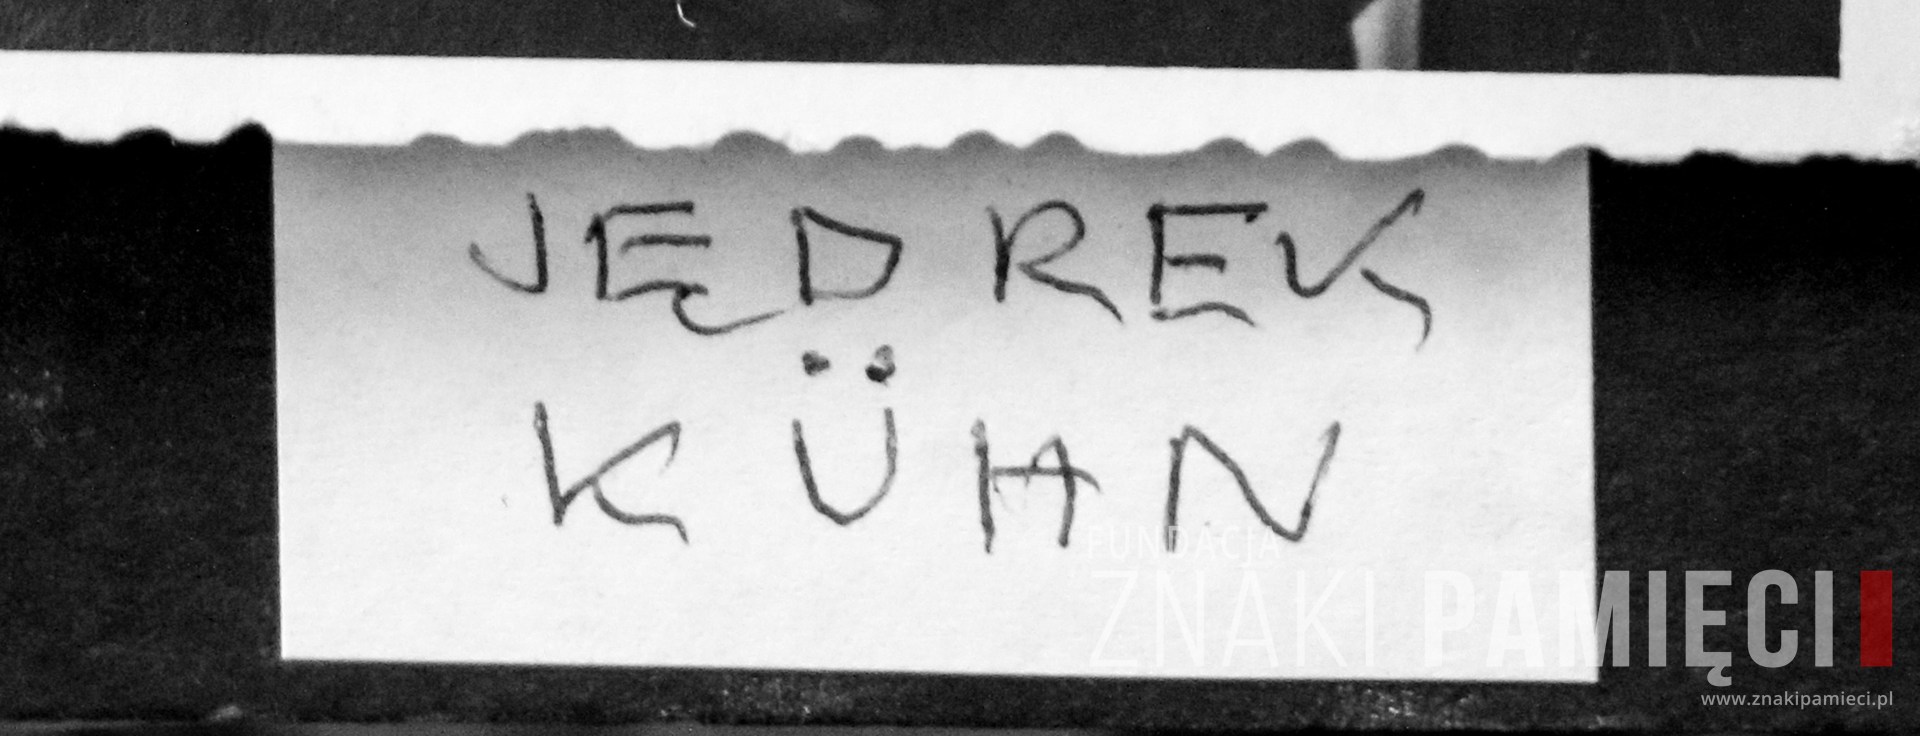 JĘDREK
KÜHN
FUNDACJA
ZNAKI PAMIĘCI
www.znakipamieci.pl